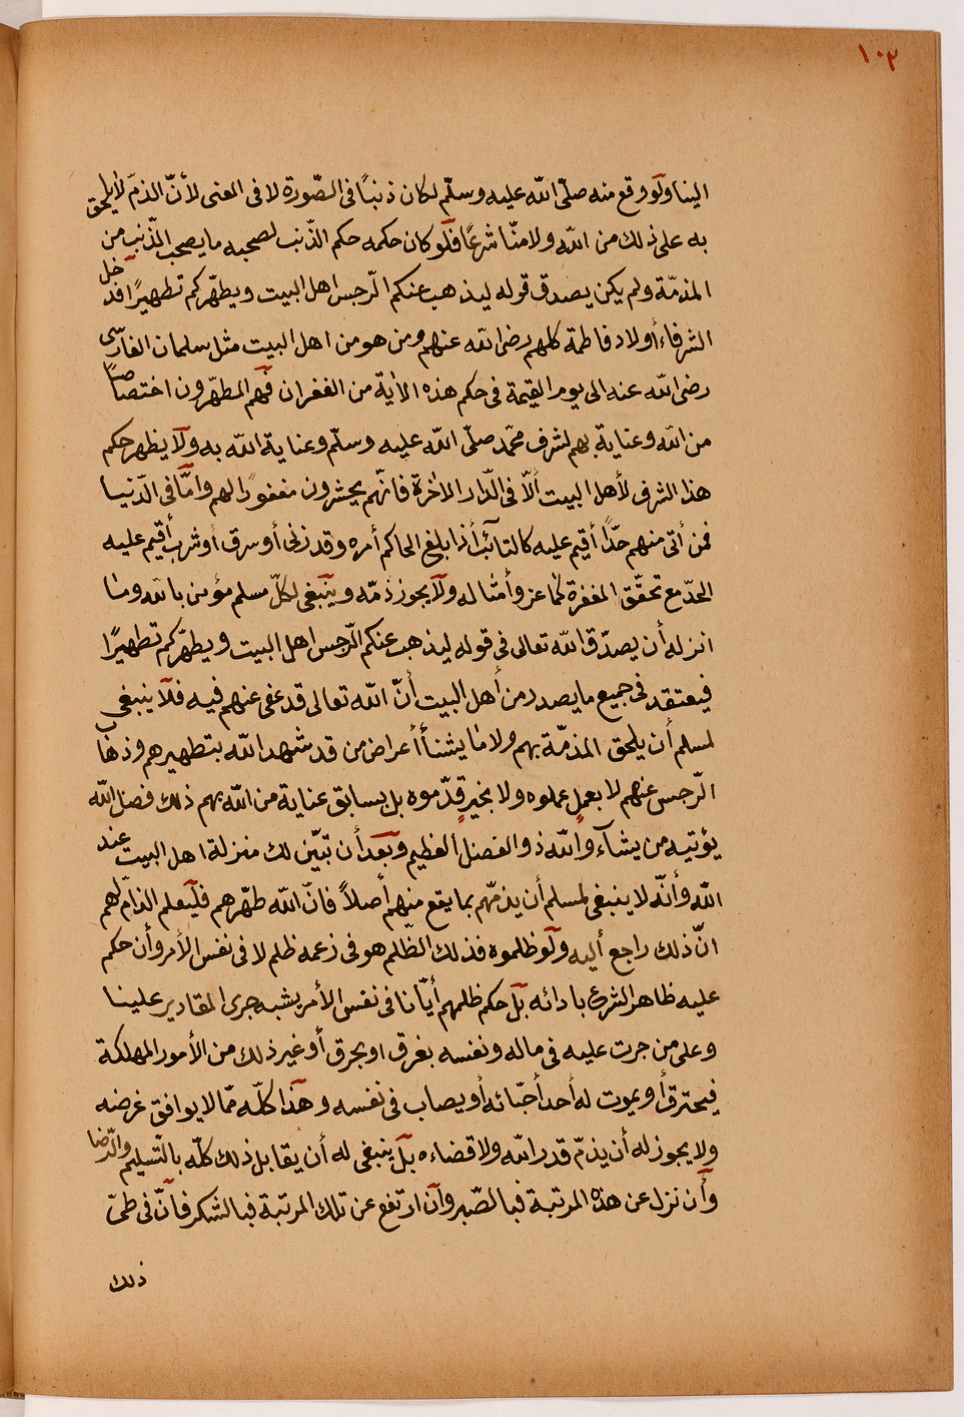 ١٠٣
الينا ولو وقع منه صلّى الله عليه وسلّم لكان ذنبًا فى الصّورة لا فى المعنى لأنّ الذمّ لا يلحق
به على ذلك من الله ولا منّا شرعًا فلو كان حكمه حكم الذّنب لصحبه ما يصحب المذّنب من
المذمّة ولم يكن يصدق قوله ليذهب عنكم الرّجس اهل البيت ويطهّركم تطهيرًا فدخل
الشرفاء أولاد فاطمة كلهم رضى الله عنهم ومن هو من اهل البيت مثل سلمان الفارسّى
رضى الله عنه الى يوم القيمة فى حكم هذه الأية من الغفران فهم المطهّرون اختصاصًا
من الله وعناية بهم لشرف محمّد صلّى الله عليه وسلّم وعناية الله به ولا يظهر حكم
هذا الشرف لأهل البيت ألاّ فى الدّار الأخرة فانّهم يحشرون مغفورًا لهم وامّا فى الدّنيا
فمن أتى منهم حدًّا أقيم عليه كالتائب أذا بلغ الحاكم أمره وقد زنى أو سرق أو شرب أقيم عليه
الحدّ مع تحقّق المغفرة كماعز وأمثاله ولا يجوز ذمّه وينبغى لكلّ مسلم مؤمن بالله وما
انزله أن يصدّق الله تعالى فى قوله ليذهب عنكم الرّجس اهل البيت ويطهّركم تطهيرًا
فيعتقد فى جميع ما يصدر من أهل البيت أنّ الله تعالى قد عفى عنهم فيه فلا ينبغى
لمسلم أن يلحق المذمّة بهم ولا ما يشنأ أعراض من قد شهد الله بتطهيرهم وذهاب
الرّجس عنهم لا بعمل عملوه ولا بخير قدّموه بل بسابق عناية من الله بهم ذلك فضل الله
يؤتيه من يشآء والله ذو الفضل العظيم وبعد أن تبيّن لك منزلة اهل البيت عند
الله وأنّه لا ينبغى لمسلم أن يذمّهم بما يقع منهم أصلاً فانّ الله طهّرهم فليعلم الذامّ لهم
انّ ذلك راجع أليه ولو ظلموه فذلك الظلم هو فى زعمه ظلم لا فى نفس الأمر وأن حكم
عليه ظاهر الشرع بادائه بل حكم ظلمهم أيّانا فى نفس الأمر يشبه جرى المقادير علينا
وعلى من جرت عليه فى ماله ونفسه بغرق او بحرق أو غير ذلك من الأمور المهلكة
فيحترق أو يموت له أحد أحبّائه أو يصاب فى نفسه وهذا كلّه ممّا لا يوافق غرضه
ولا يجوز له أن يذمّ قدر الله ولا قضاءه بل ينبغى له أن يقابل ذلك كلّه بالتّسليم والرّضا
وأن نزل عن هذه المرتبة فبالصّبر وأن ارتفع عن تلك المرتبة فبالشكر فأنّ فى طىّ
ذلك